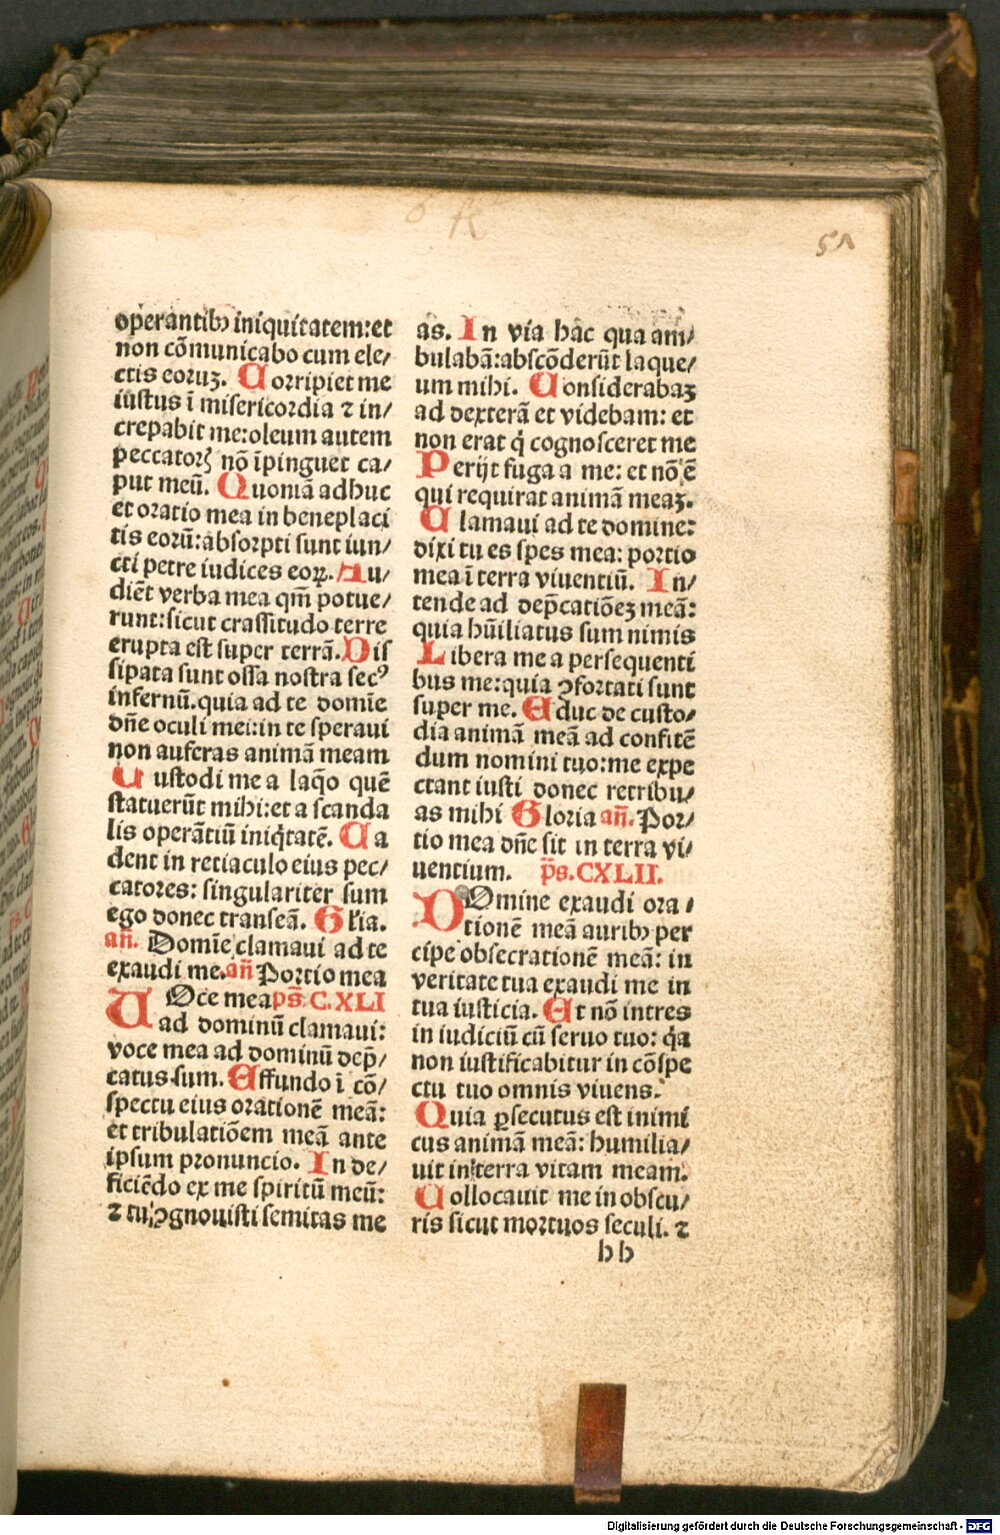 51
operantibꝰ iniquitatem:et
non cōmunicabo cum ele/
ctis eoruꝫ. Corripiet me
iustus ī misericordia ⁊ in/
crepabit me:oleum autem
peccatorꝝ nō īpinguet ca/
put meū. Quoniā adhuc
et oratio mea in beneplaci
tis eorū:absorpti sunt iun/
cti petre iudices eoꝝ. Au/
diēt verba mea qm̄ potue/
runt:sicut crassitudo terre
erupta est super terrā. Dis
sipata sunt ossa nostra secꝰ
infernū.quia ad te domīe
dn̄e oculi mei:in te speraui
non auferas animā meam
Custodi me a laq̄o quē
statuerūt mihi:et a scanda
lis operātiū iniq̇tatē. Ca
dent in retiaculo eius pec/
catores: singulariter sum
ego donec transeā. Gl'ia.
an̄. Domīe clamaui ad te
exaudi me.an̄ Portio mea
VOce mea ps̄.C.XLI
ad dominū clamaui:
voce mea ad dominū dep̄/
catus sum. Effundo ī cō/
spectu eius orationē meā:
et tribulatiōem meā ante
ipsum pronuncio. In de/
ficiēdo ex me spiritū meū:
⁊ tu ꝯgnouisti semitas me
as. In via hac qua am/
bulabā:abscōderūt laque/
um mihi. Considerabaꝫ
ad dexterā et videbam: et
non erat q̇ cognosceret me
Perijt fuga a me: et nō ē
qui requirat animā meaꝫ.
Clamaui ad te domine:
dixi tu es spes mea: portio
mea ī terra viuentiū. In/
tende ad dep̄catiōeꝫ meā:
quia hūiliatus sum nimis
Libera me a persequenti
bus me:quia ꝯfortati sunt
super me. Educ de custo/
dia animā meā ad confitē
dum nomini tuo:me expe
ctant iusti donec retribu/
as mihi Gloria an̄. Por/
tio mea dn̄e sit in terra vi/
uentium. ps̄.CXLII.
DOmine exaudi ora/
tionē meā auribꝰ per
cipe obsecrationē meā: in
veritate tua exaudi me in
tua iusticia. Et nō intres
in iudiciū cū seruo tuo: q̇a
non iustificabitur in cōspe
ctu tuo omnis viuens.
Quia ꝑsecutus est inimi
cus animā meā: humilia/
uit in terra vitam meam.
Collocauit me in obscu/
ris sicut mortuos seculi. ⁊
hh
Digitalisierung gefördert durch die Deutsche Forschungsgemeinschaft - DFG